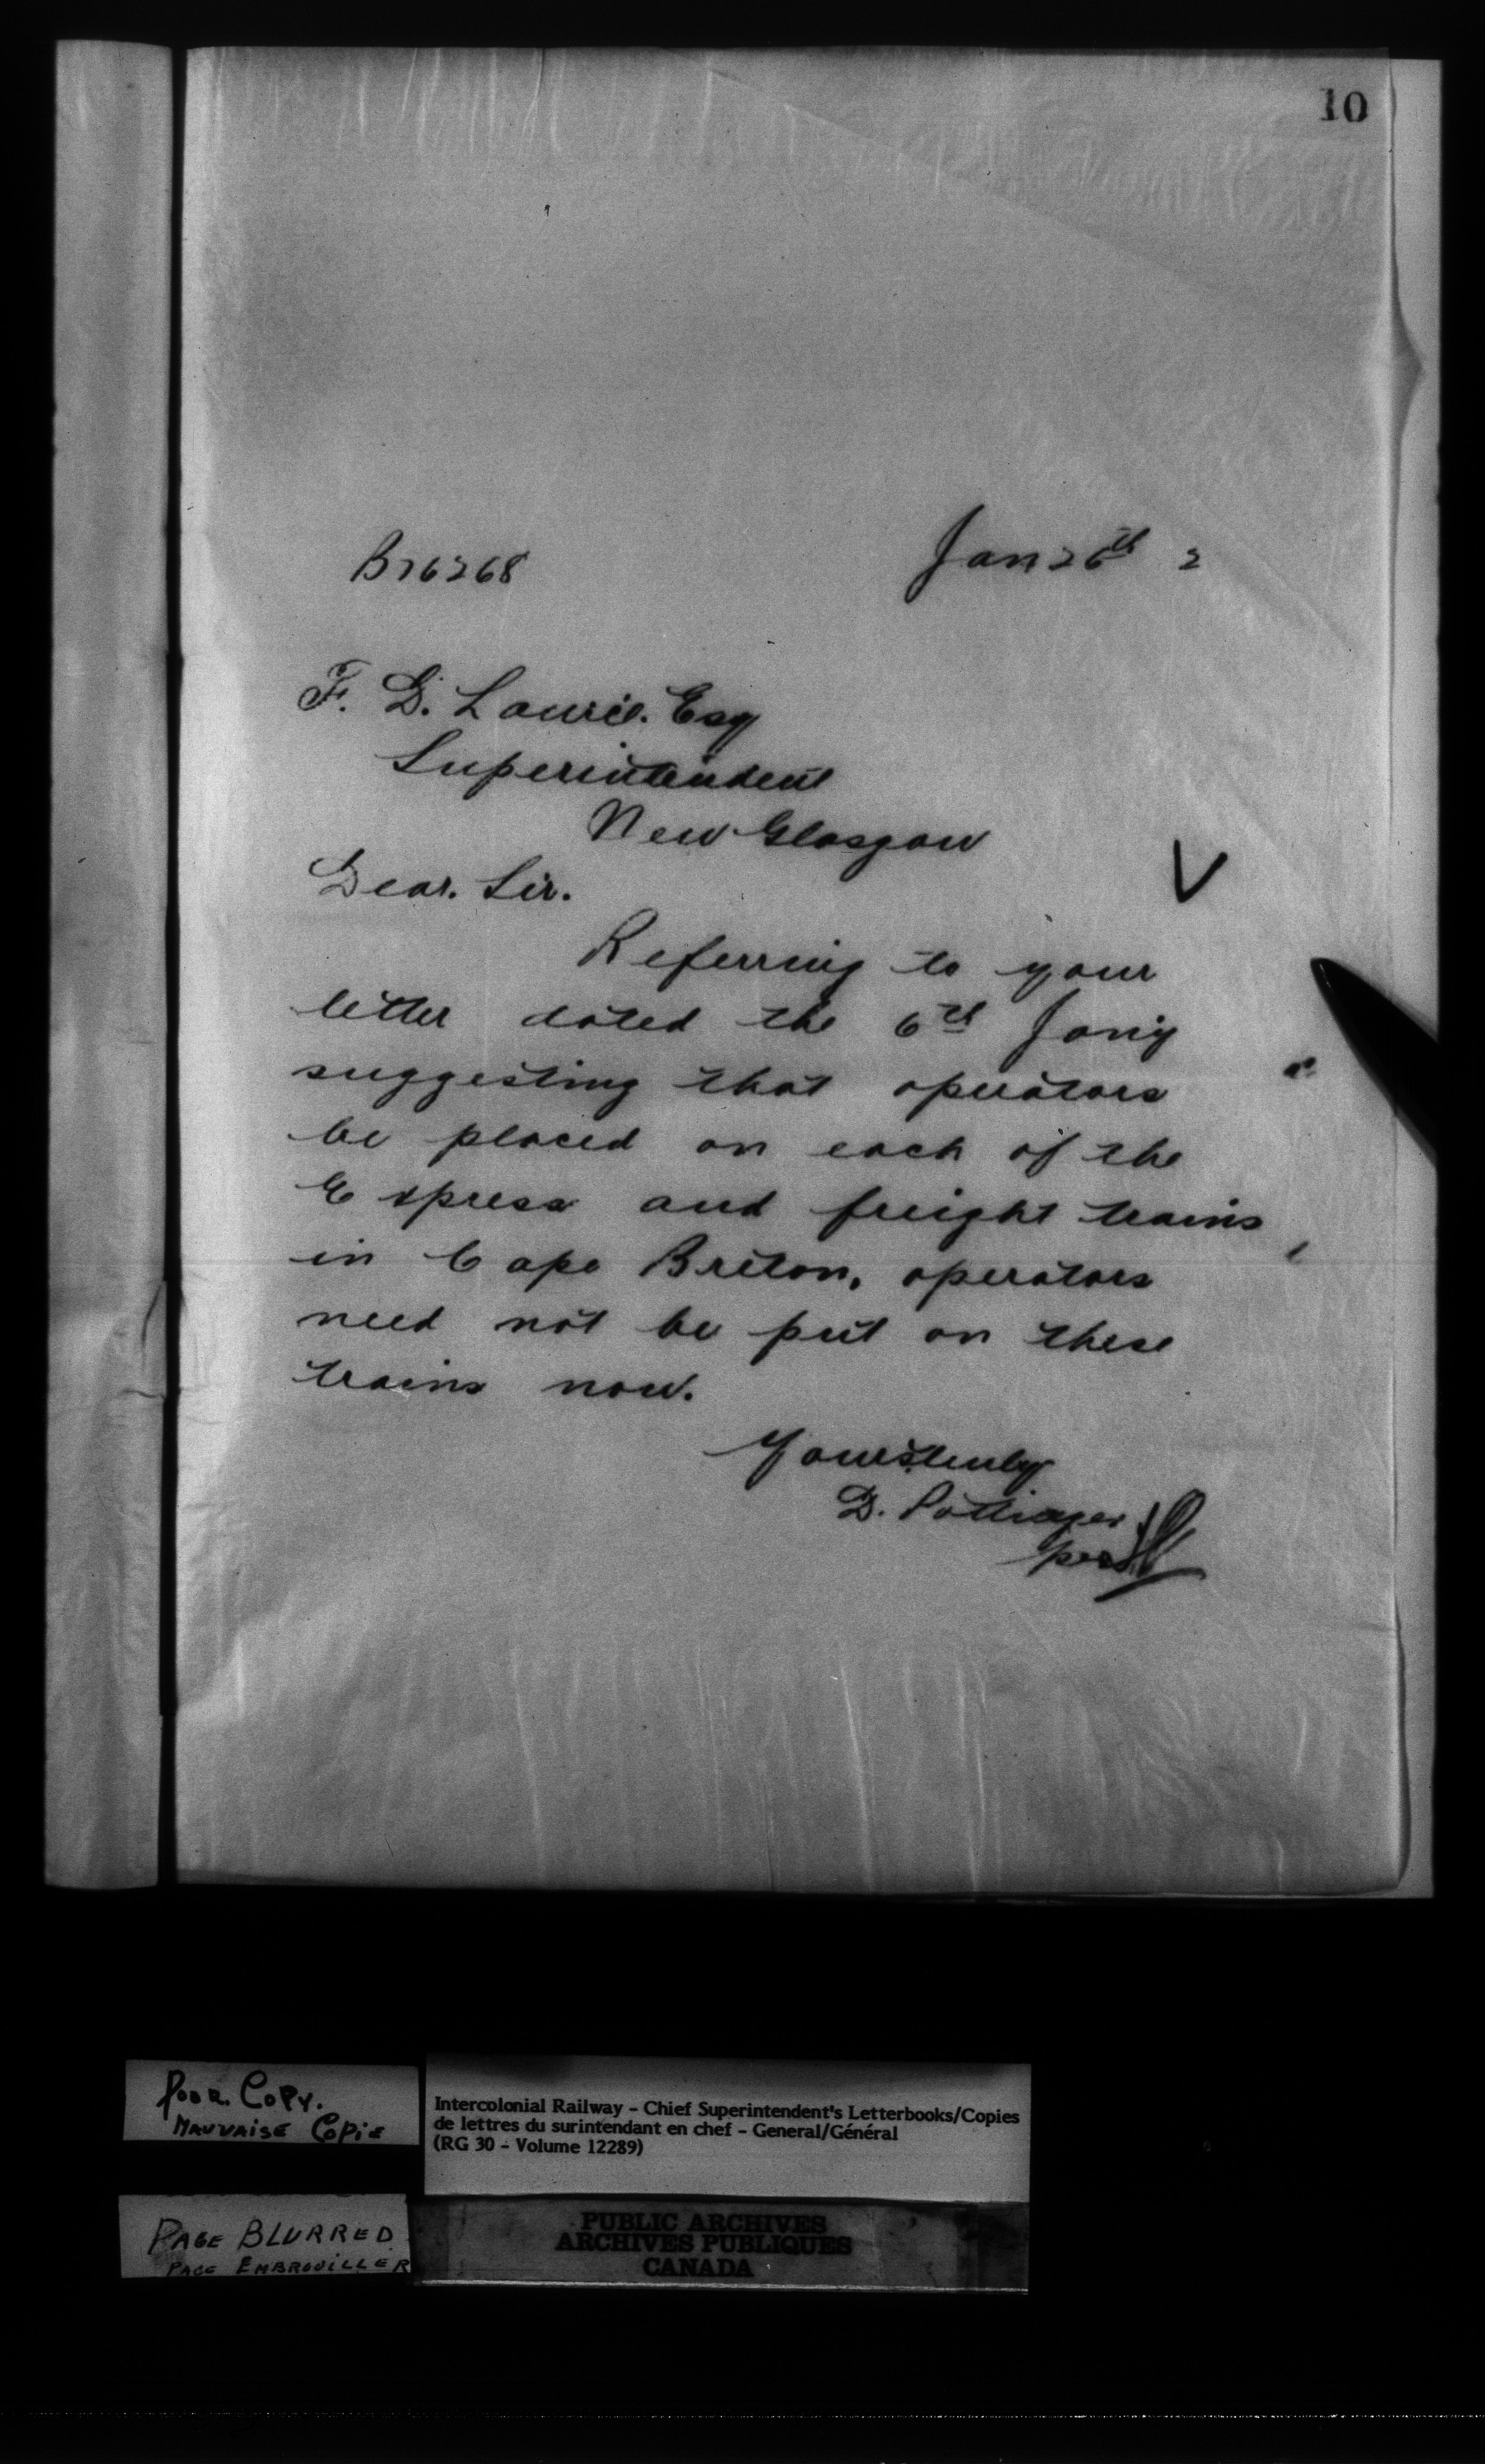 10
B26268
Jan 26th 2
F. D. Laurie. Esq
Superintendent
New Glasgow
Dear. Sir.
V
Referring to your
letter dated the 6th Jany
suggesting that operators
be placed on each of the
Express and freight trains
in Cape Breton, operators
need not be put on these
trains now.
Yours truly
D. Pottinger
per
Poor. Copy.
Mauvaise Copie
Intercolonial Railway – Chief Superintendent's Letterbooks/Copies
de lettres du surintendant en chef – General/Général
(RG 30 – Volume 12289)
PAGE BLURRED
PAGE EMBROUILLER
PUBLIC ARCHIVES
ARCHIVES PUBLIQUES
CANADA